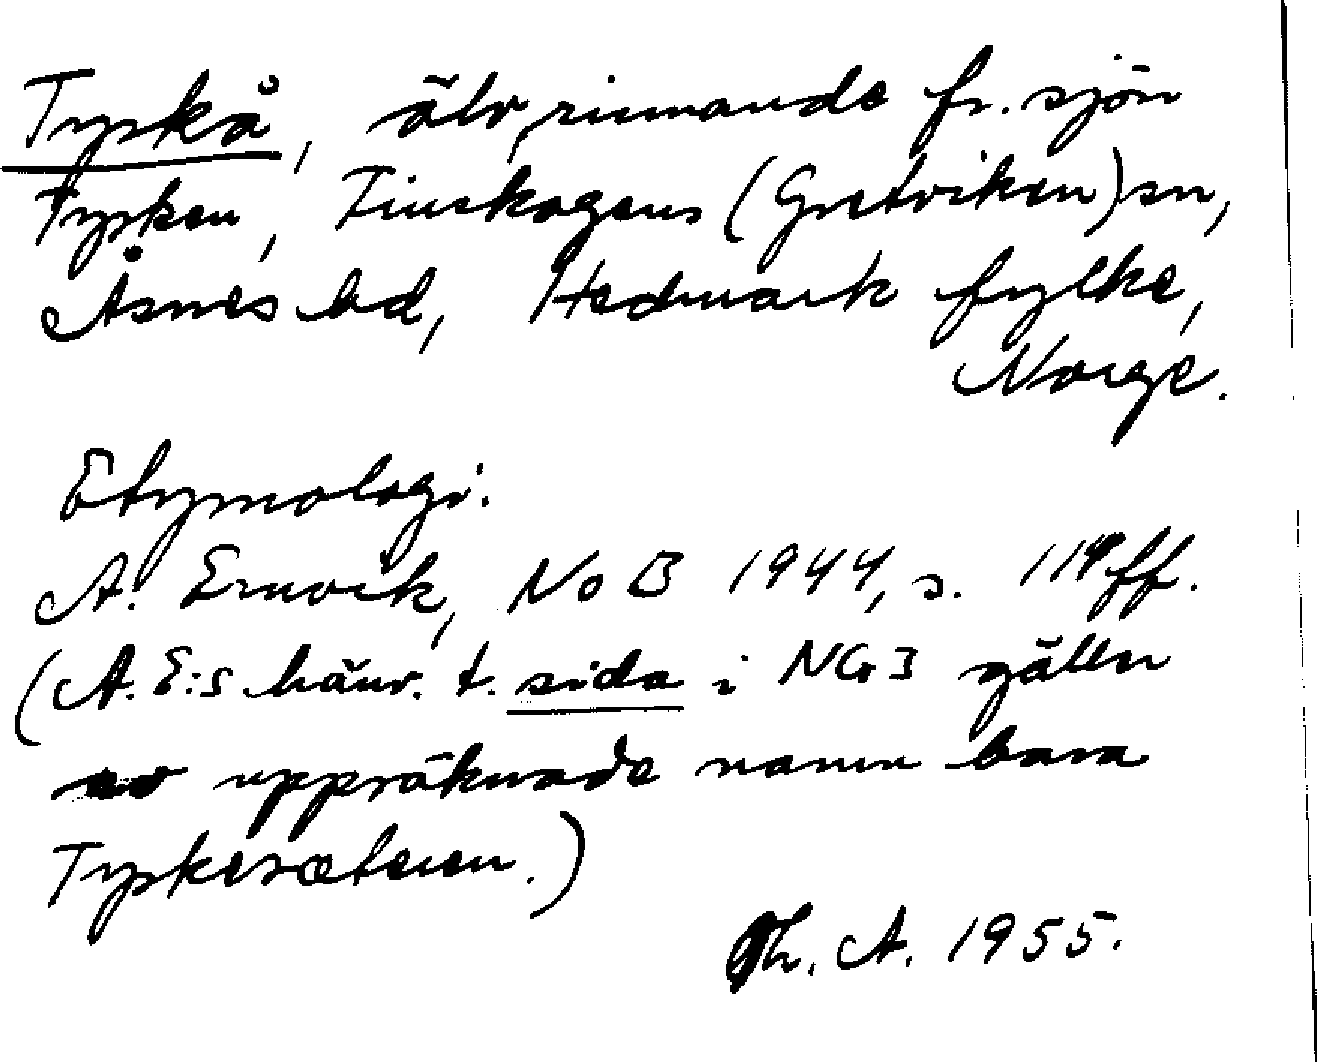 Tyskå, älv, rinnande fr. sjön
Tysken, Finskogens (Gretviken) sn,
Åsnes hd, Hedmark fylke,
Norge.
Etymologi.
A. Ernvik, NoB 1944, s. 119 ff.
(A. E:s hänv. t. sida i NG 3 gäller
av uppräknade namn bara
Tyskesæteren.)
Th. A. 1955.